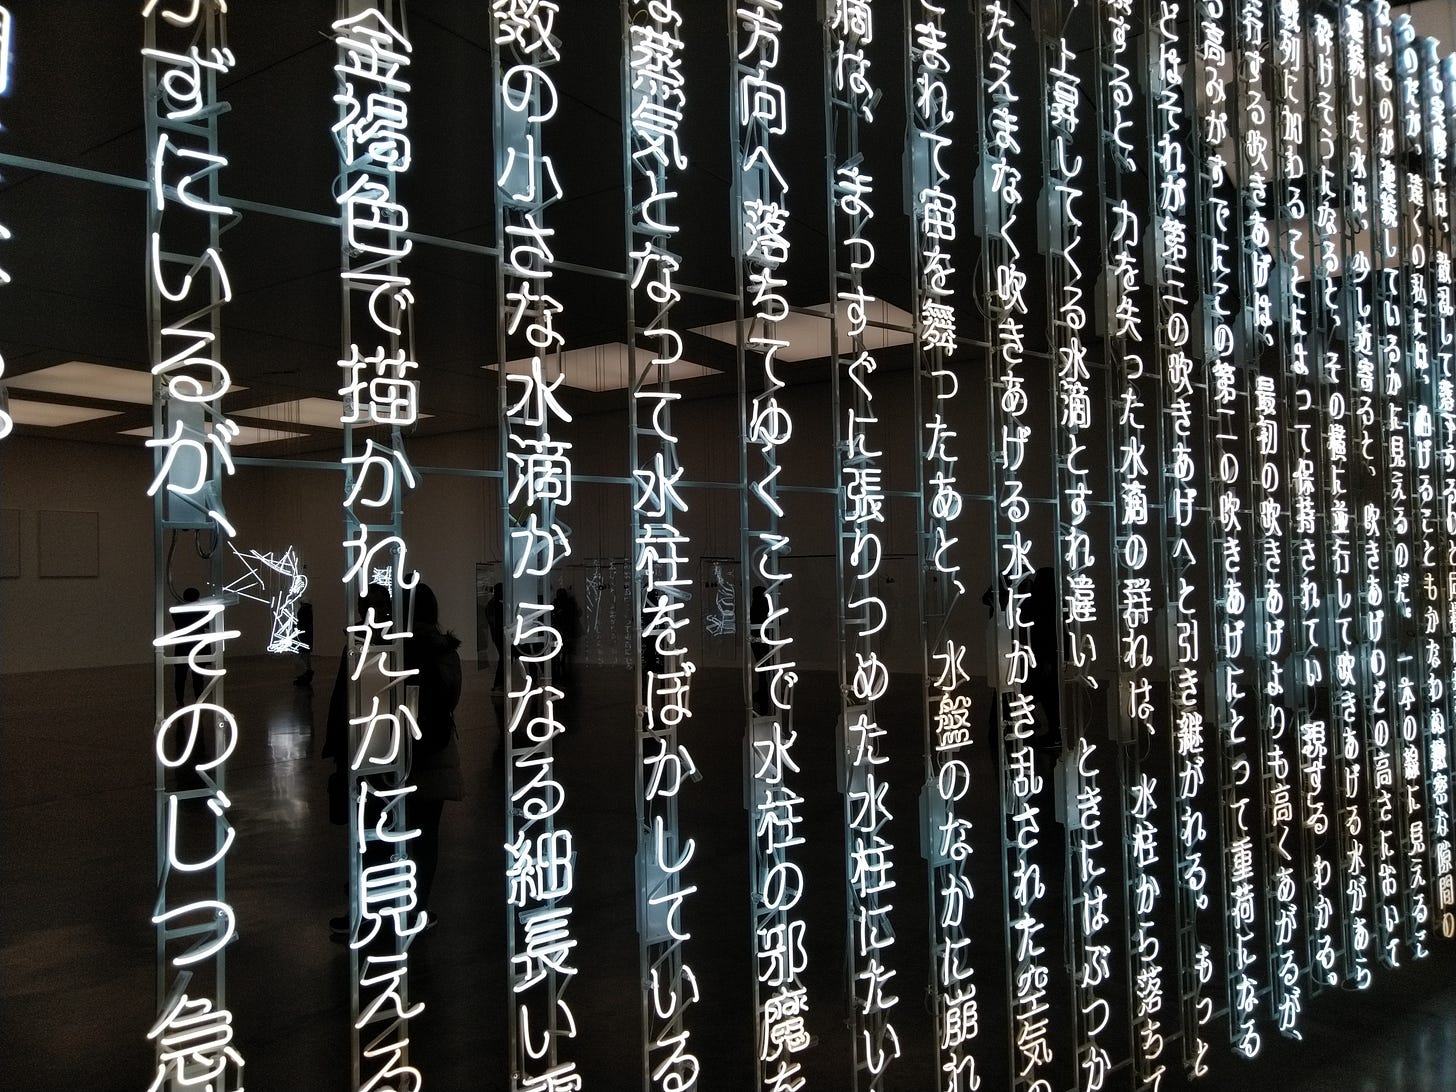 ないものが連続しているかに見えるのだ。一本の線に見えると
連続した水は、少し近寄ると、吹きあげのどの高さにおいて
砕けそうになると、その横に並行して吹きあげる水があら
戦列に加わることによって保持されてい わかる。
行する吹きあげは、最初の吹きあげよりも高くあがるが、
る高みがすでにこの第二の吹きあげにとって重荷になる
とはそれが第三の吹きあげへと引き継がれる。もっと
なると、力を失った水滴の群れは、水柱から落ちて
、上昇してくる水滴とすれ違い、ときにはぶつか
たえまなく吹きあげる水にかき乱された空気の
まれて宙を舞ったあと、水盤のなかに崩れ
滴は、まっすぐに張りつめた水柱にたい
方向へ落ちてゆくことで水柱の邪魔を
な蒸気となって水柱をぼかしている
数の小さな水滴からなる細長い
金褐色で描かれたかに見える
かずにいるが、そのじつ急